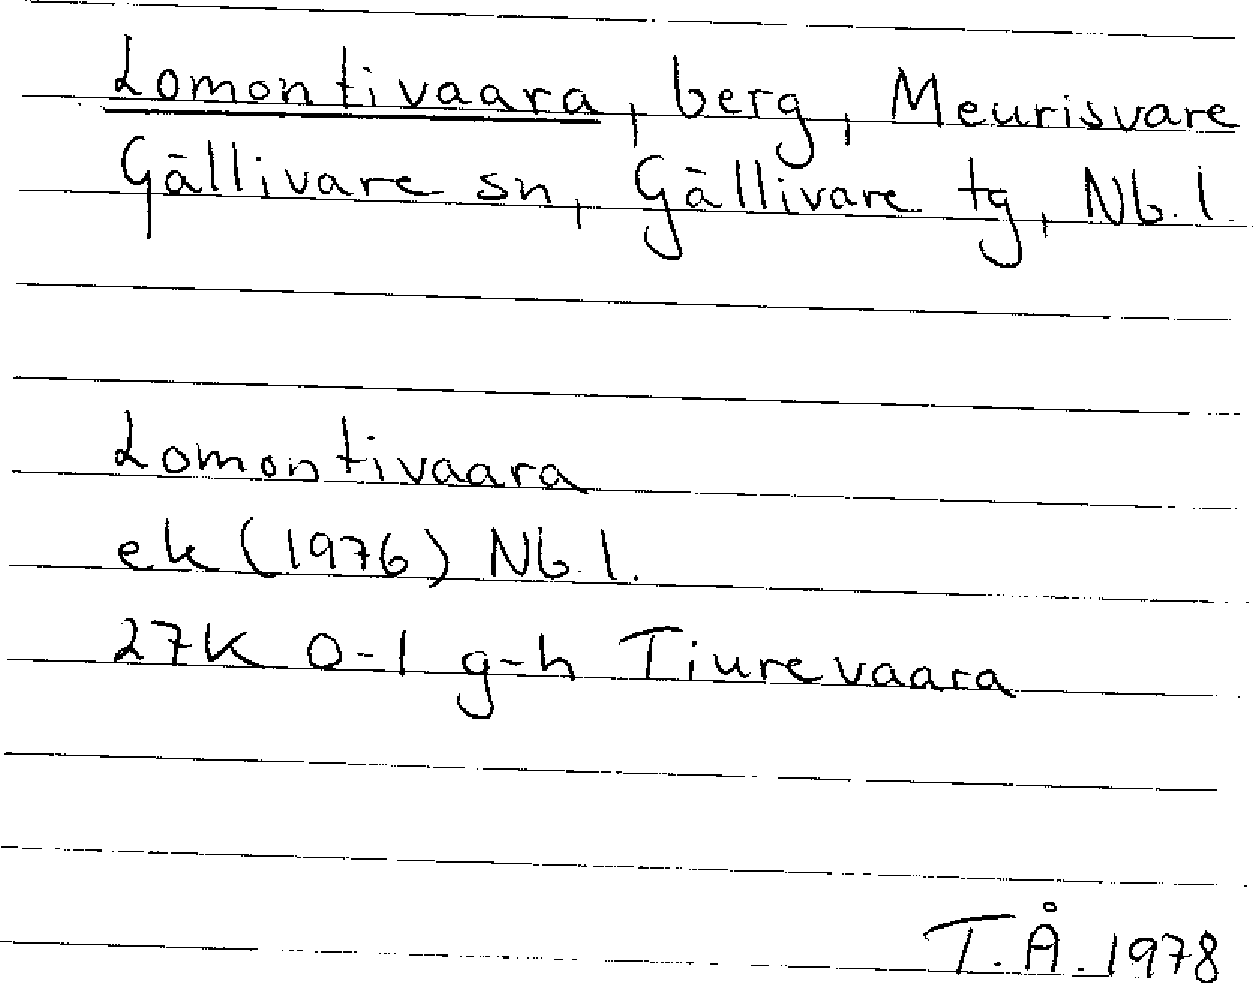 Lomontivaara, berg, Meurisvare
Gällivare sn, Gällivare tg, Nb. l.
Lomontivaara
ek (1976) Nb. l.
27K 0-1 g-h Tiurevaara
T.Å. 1978